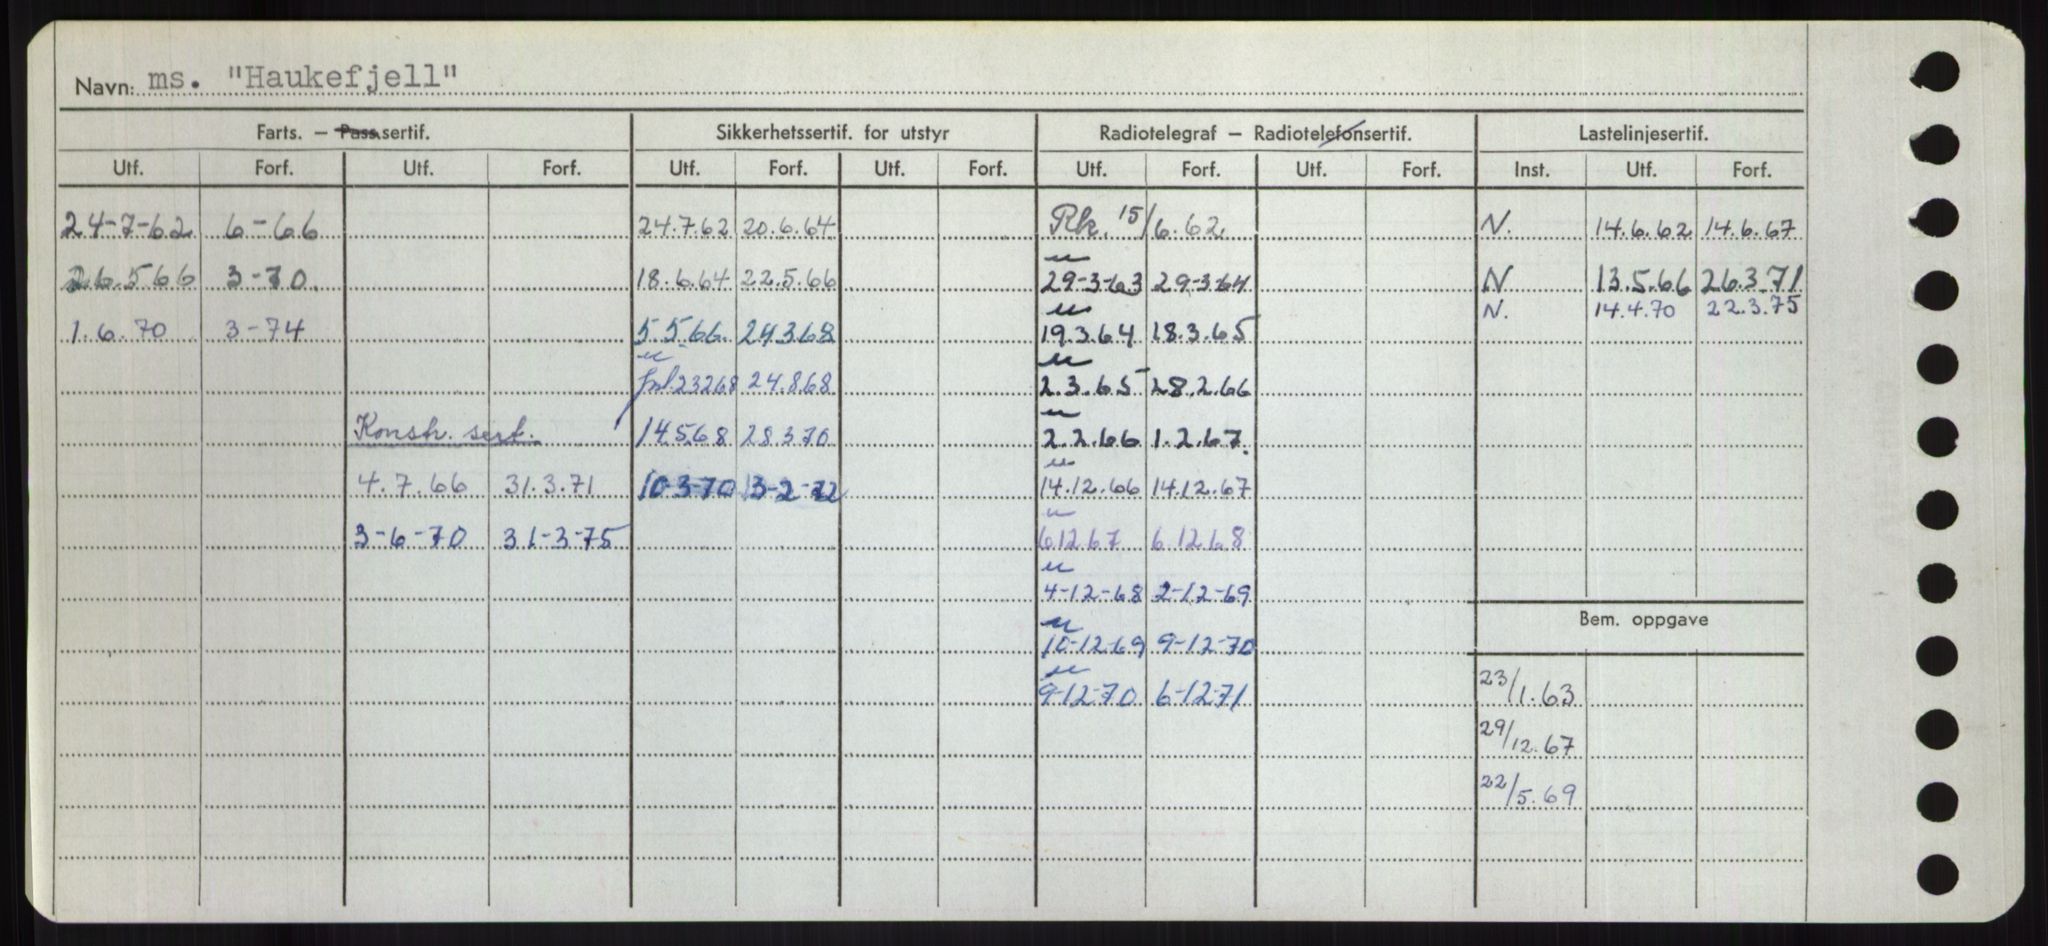 Navn: ms. "Haukefjell"
Farts. — Pass sertif. Sikkerhetssertif. for utstyr Radiotelegraf — Radiotelefonsertif. Lastelinjesertif.
Utf. Forf. Utf. Forf. Utf. Forf. Utf. Forf. Utf. Forf. Utf. Forf. Inst. Utf. Forf.
24-7-62 6-66 24.7.62 20.6.64 Rk. 15/6.62 N. 14.6.62 14.6.67
26.5 66 3-70. 18.6.64 22.5.66 " 29-3-63 29-3-64 N 13.5.66 26.3.71
N. 14.4.70 22.3.75
1.6.70 3-74 5.5.66. 24368 " 19.3.64 18.3.65
" 23268 24.8.68 " 2.3.65 28.2.66
Konstr. sert. 14568 28370 " 2.2.66 1.2.67.
4.7.66 31.3.71 10-3-70 13-2-72 " 14.12.66 14.12.67
3-6-70 31-3-75 " 6.12.67 6.12.68
" 4-12-68 2-12-69
Bem. oppgave
" 10-12-69 9-12-70
" 9-12-70 6-12-71 23/1.63
29/12.67
22/5.69